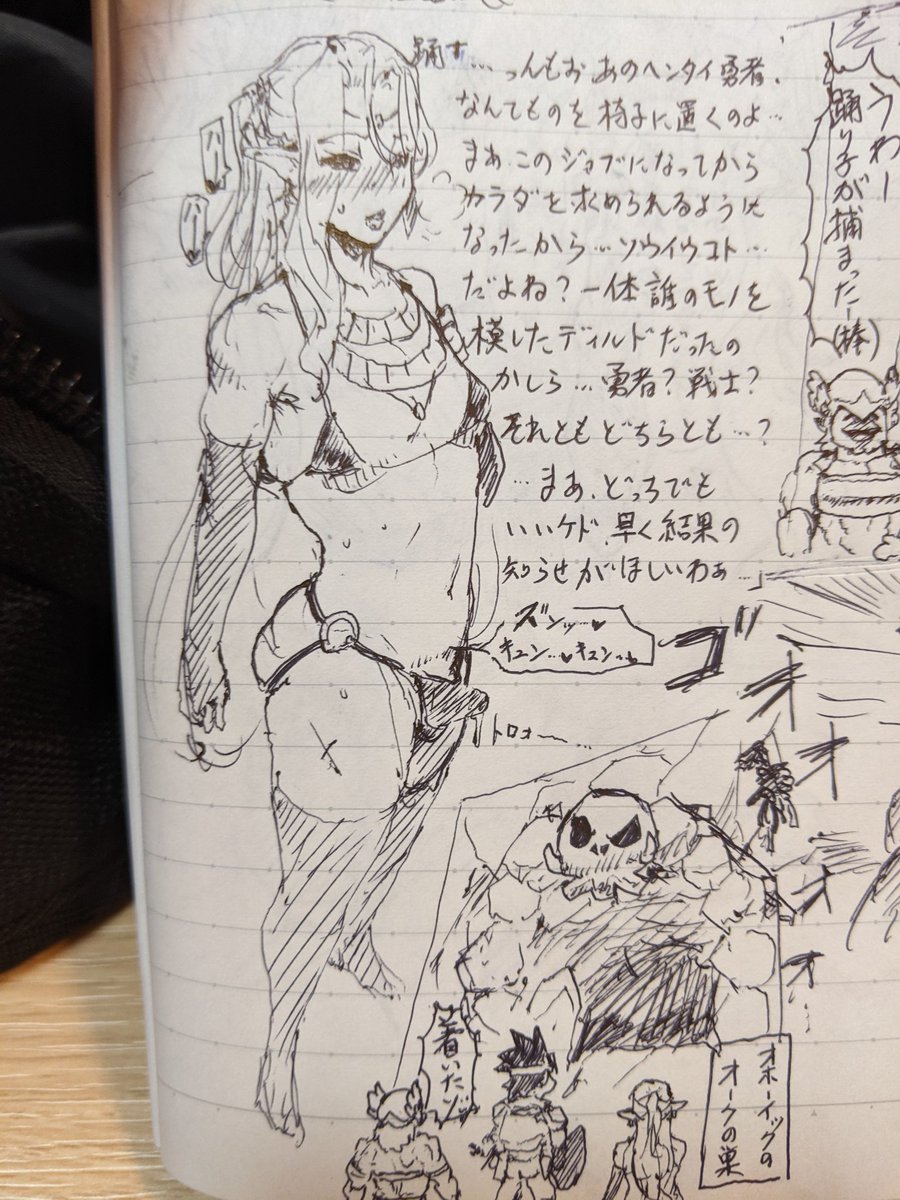 踊す… っんもぉ あのヘンタイ勇者、
なんてものを 椅子に置くのよ…
まぁ、このジョブになってから
カラダを求められるように
なったから…ソウイウコト…
だよね？一体誰のモノを
模したディルドだったの
かしら…勇者？戦士？
それともどちらとも…？
…まぁ、どっちでも
いいケド、早く結果の
知らせがほしいわぁ…」
うわー
踊り子が捕まったー
(棒)
ズンッ…♥
キュン…♥キュン…♥
トロォ〜…
ゴオオオオ…
着いたゾ
オホーイッグの
オークの巣